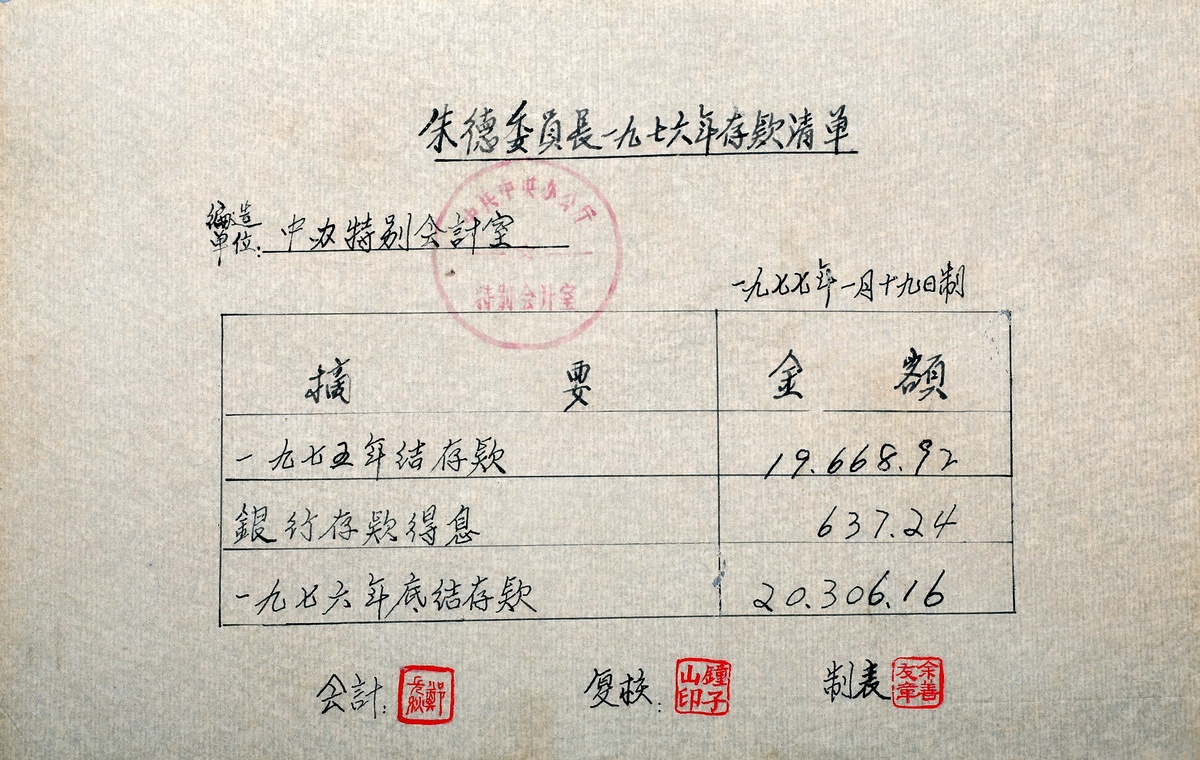 朱德委員長一九七六年存款清单
編造
单位:中办特别会計室
中共中央办公厅
特别会计室
一九七七年一月十九日制
摘 要 金 額
一九七五年结存款 19.668.92
銀行存款得息 637.24
一九七六年底结存款 20.306.16
会計: 鄭 复核: 鐘子山印 制表 余善友章